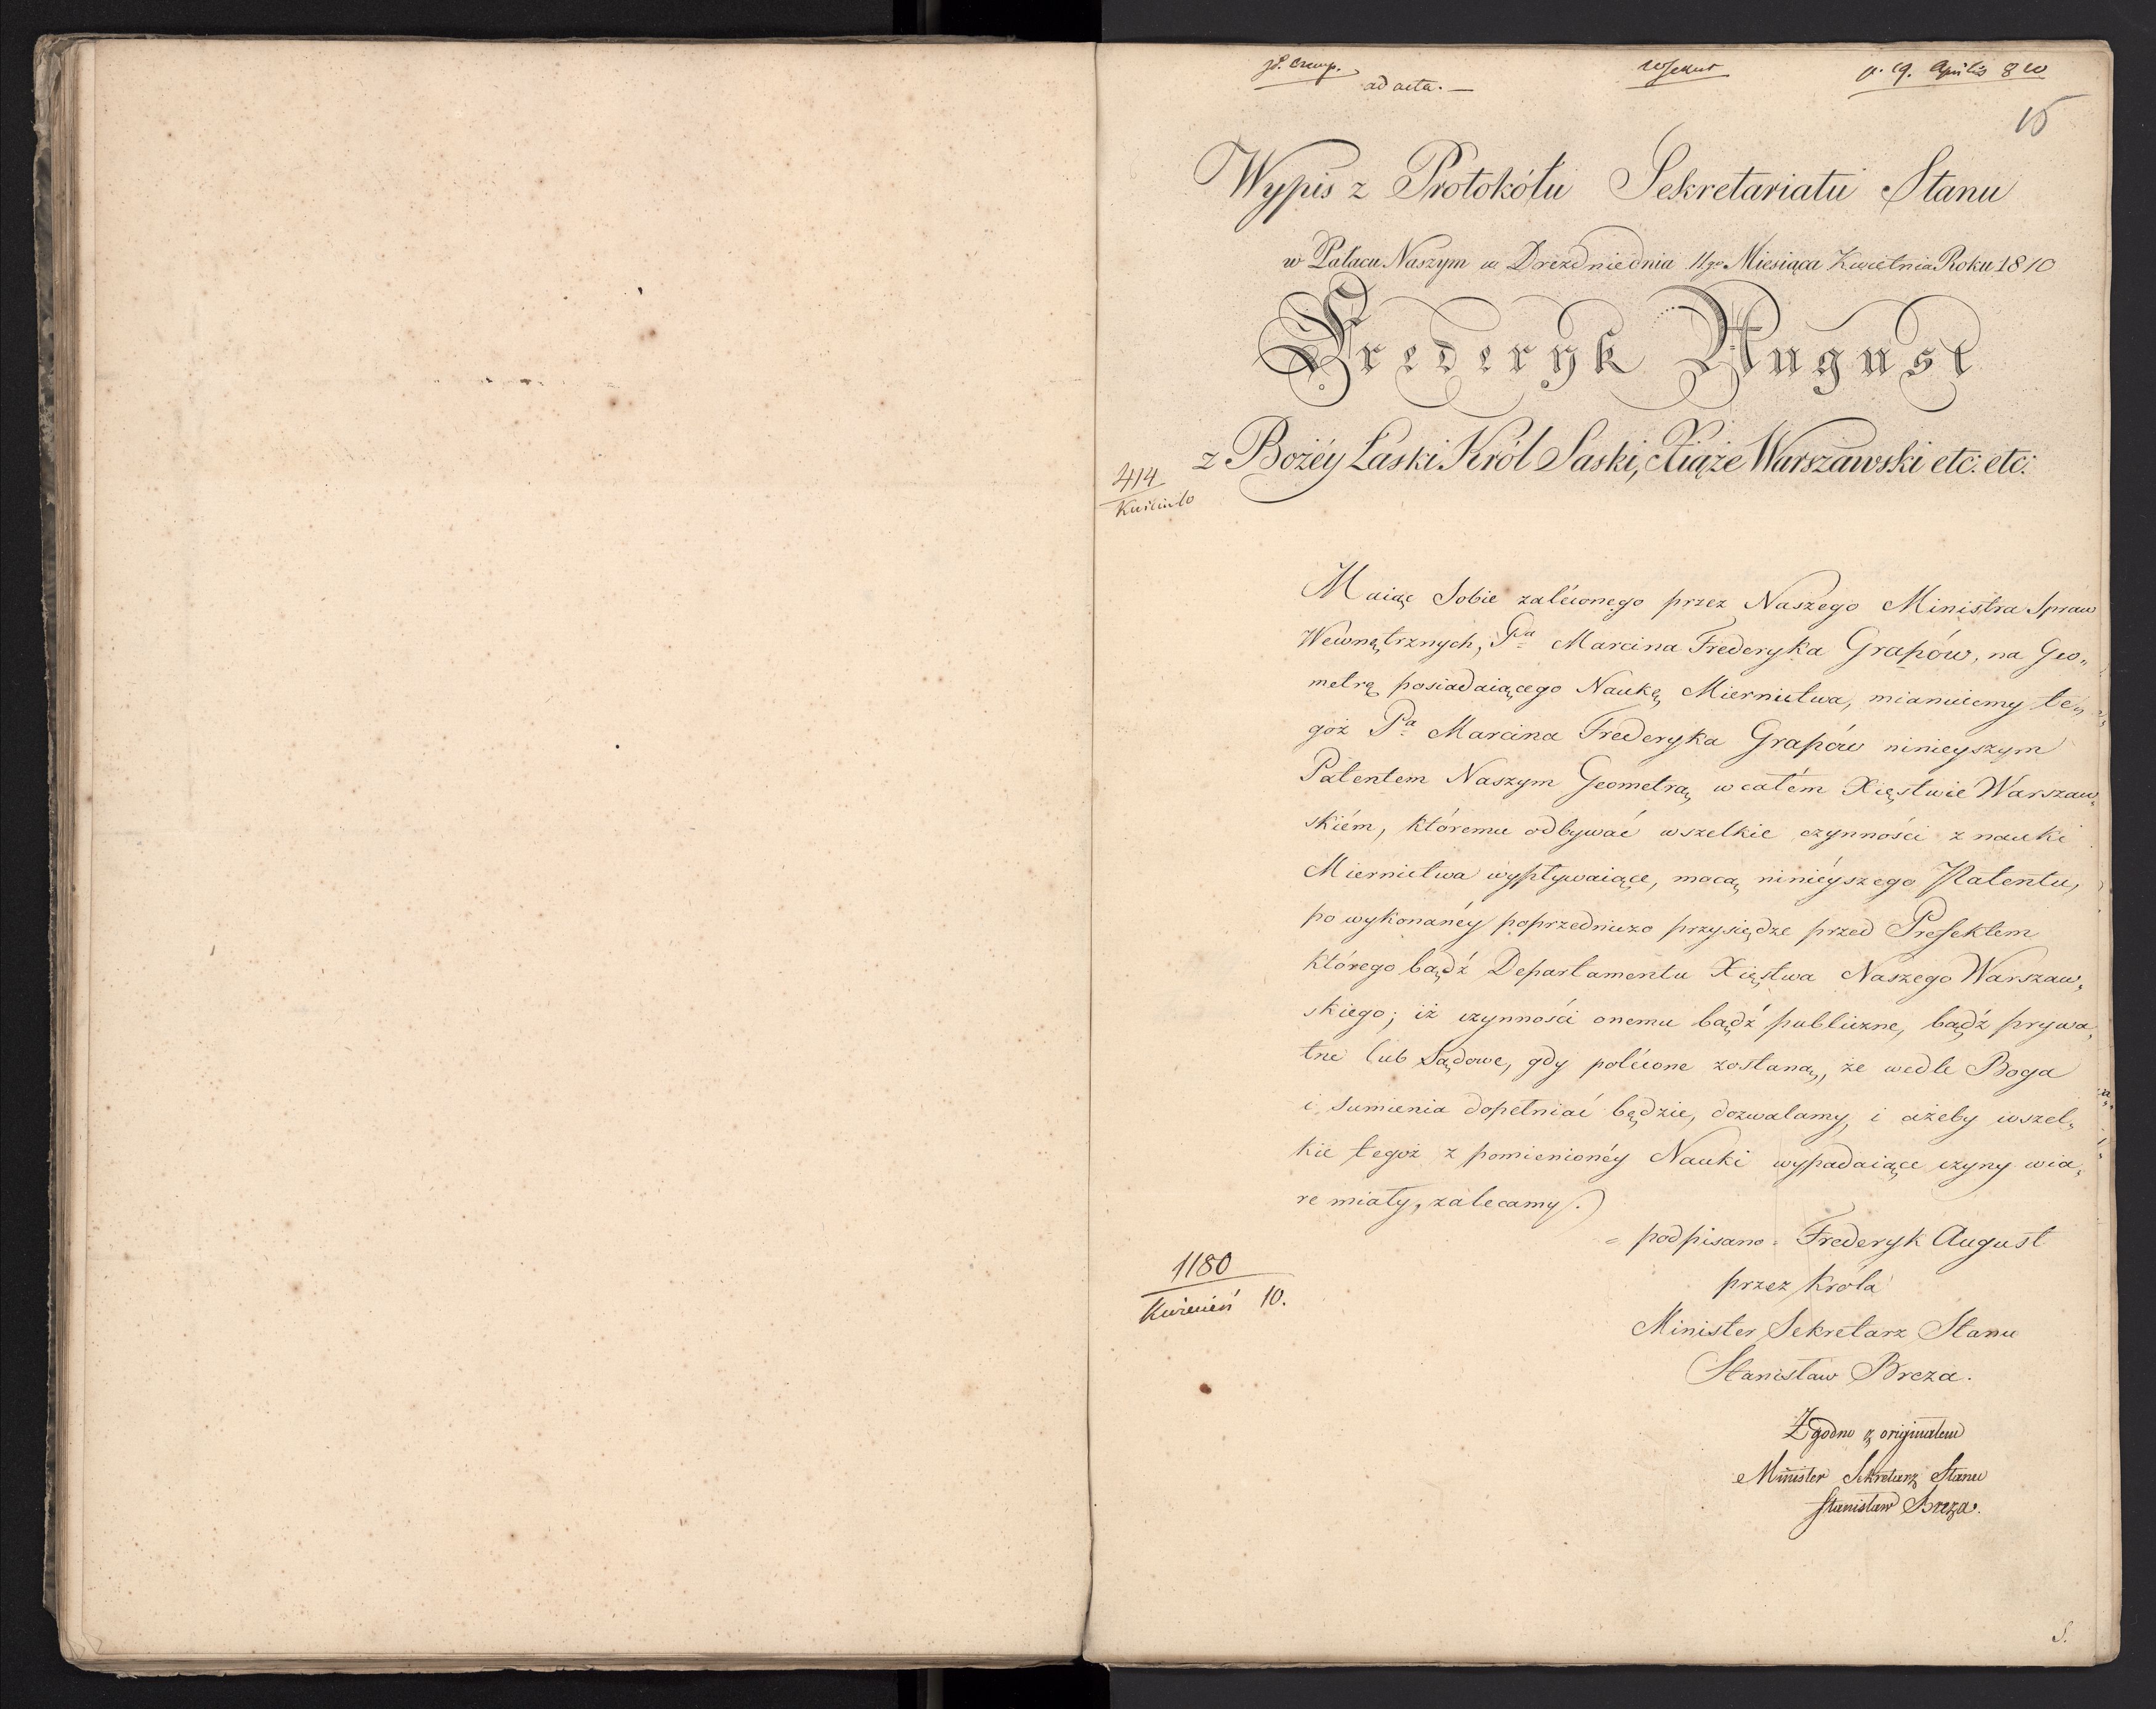 ad acta. —
p. 19. Aprilis 810
Wypis z Protokółu Sekretariatu Stanu
w Pałacu Naszym w Dreźnie dnia 11go Miesiąca Kwietnia Roku 1810
Frederyk August
z Bożéy Łaski Król Saski, Xiąże Warszawski etc: etc:
414
Maiąc Sobie zalécionego przez Naszego Ministra Spraw
Wewnętrznych, Pa Marcina Frederyka Grapów, na Geo„
metrę posiadaiącego Naukę Miernictwa, mianuiemy te„
goż Pa Marcina Frederyka Grapów ninieyszym
Patentem Naszym Geometrą w całém Xięstwie Warszaw„
skiém, któremu odbywać wszelkie czynności z nauki
Miernictwa wypływaiące, mocą ninieyszego Patentu,
po wykonanéy poprzedniczo przysiędze przed Prefektem
którego bądź Departamentu Xięstwa Naszego Warszaw„
skiego; iż czynności onemu bądź publiczne, bądź prywa„
tne lub Sądowe, gdy polécone zostaną, że wedle Boga
i Sumienia dopełniać będzie, dozwalamy, i ażeby wszel„
kie tegoż z pomienionéy Nauki wypadaiące czyny wia„
re miały, zalecamy.
= podpisano = Frederyk August
przez Króla
Minister Sekretarz Stanu
Stanisław Breza.
1180
Kwiecień 10.
Zgodno z oryginałem
Minister Sekretarz Stanu
Stanisław Breza.
S.